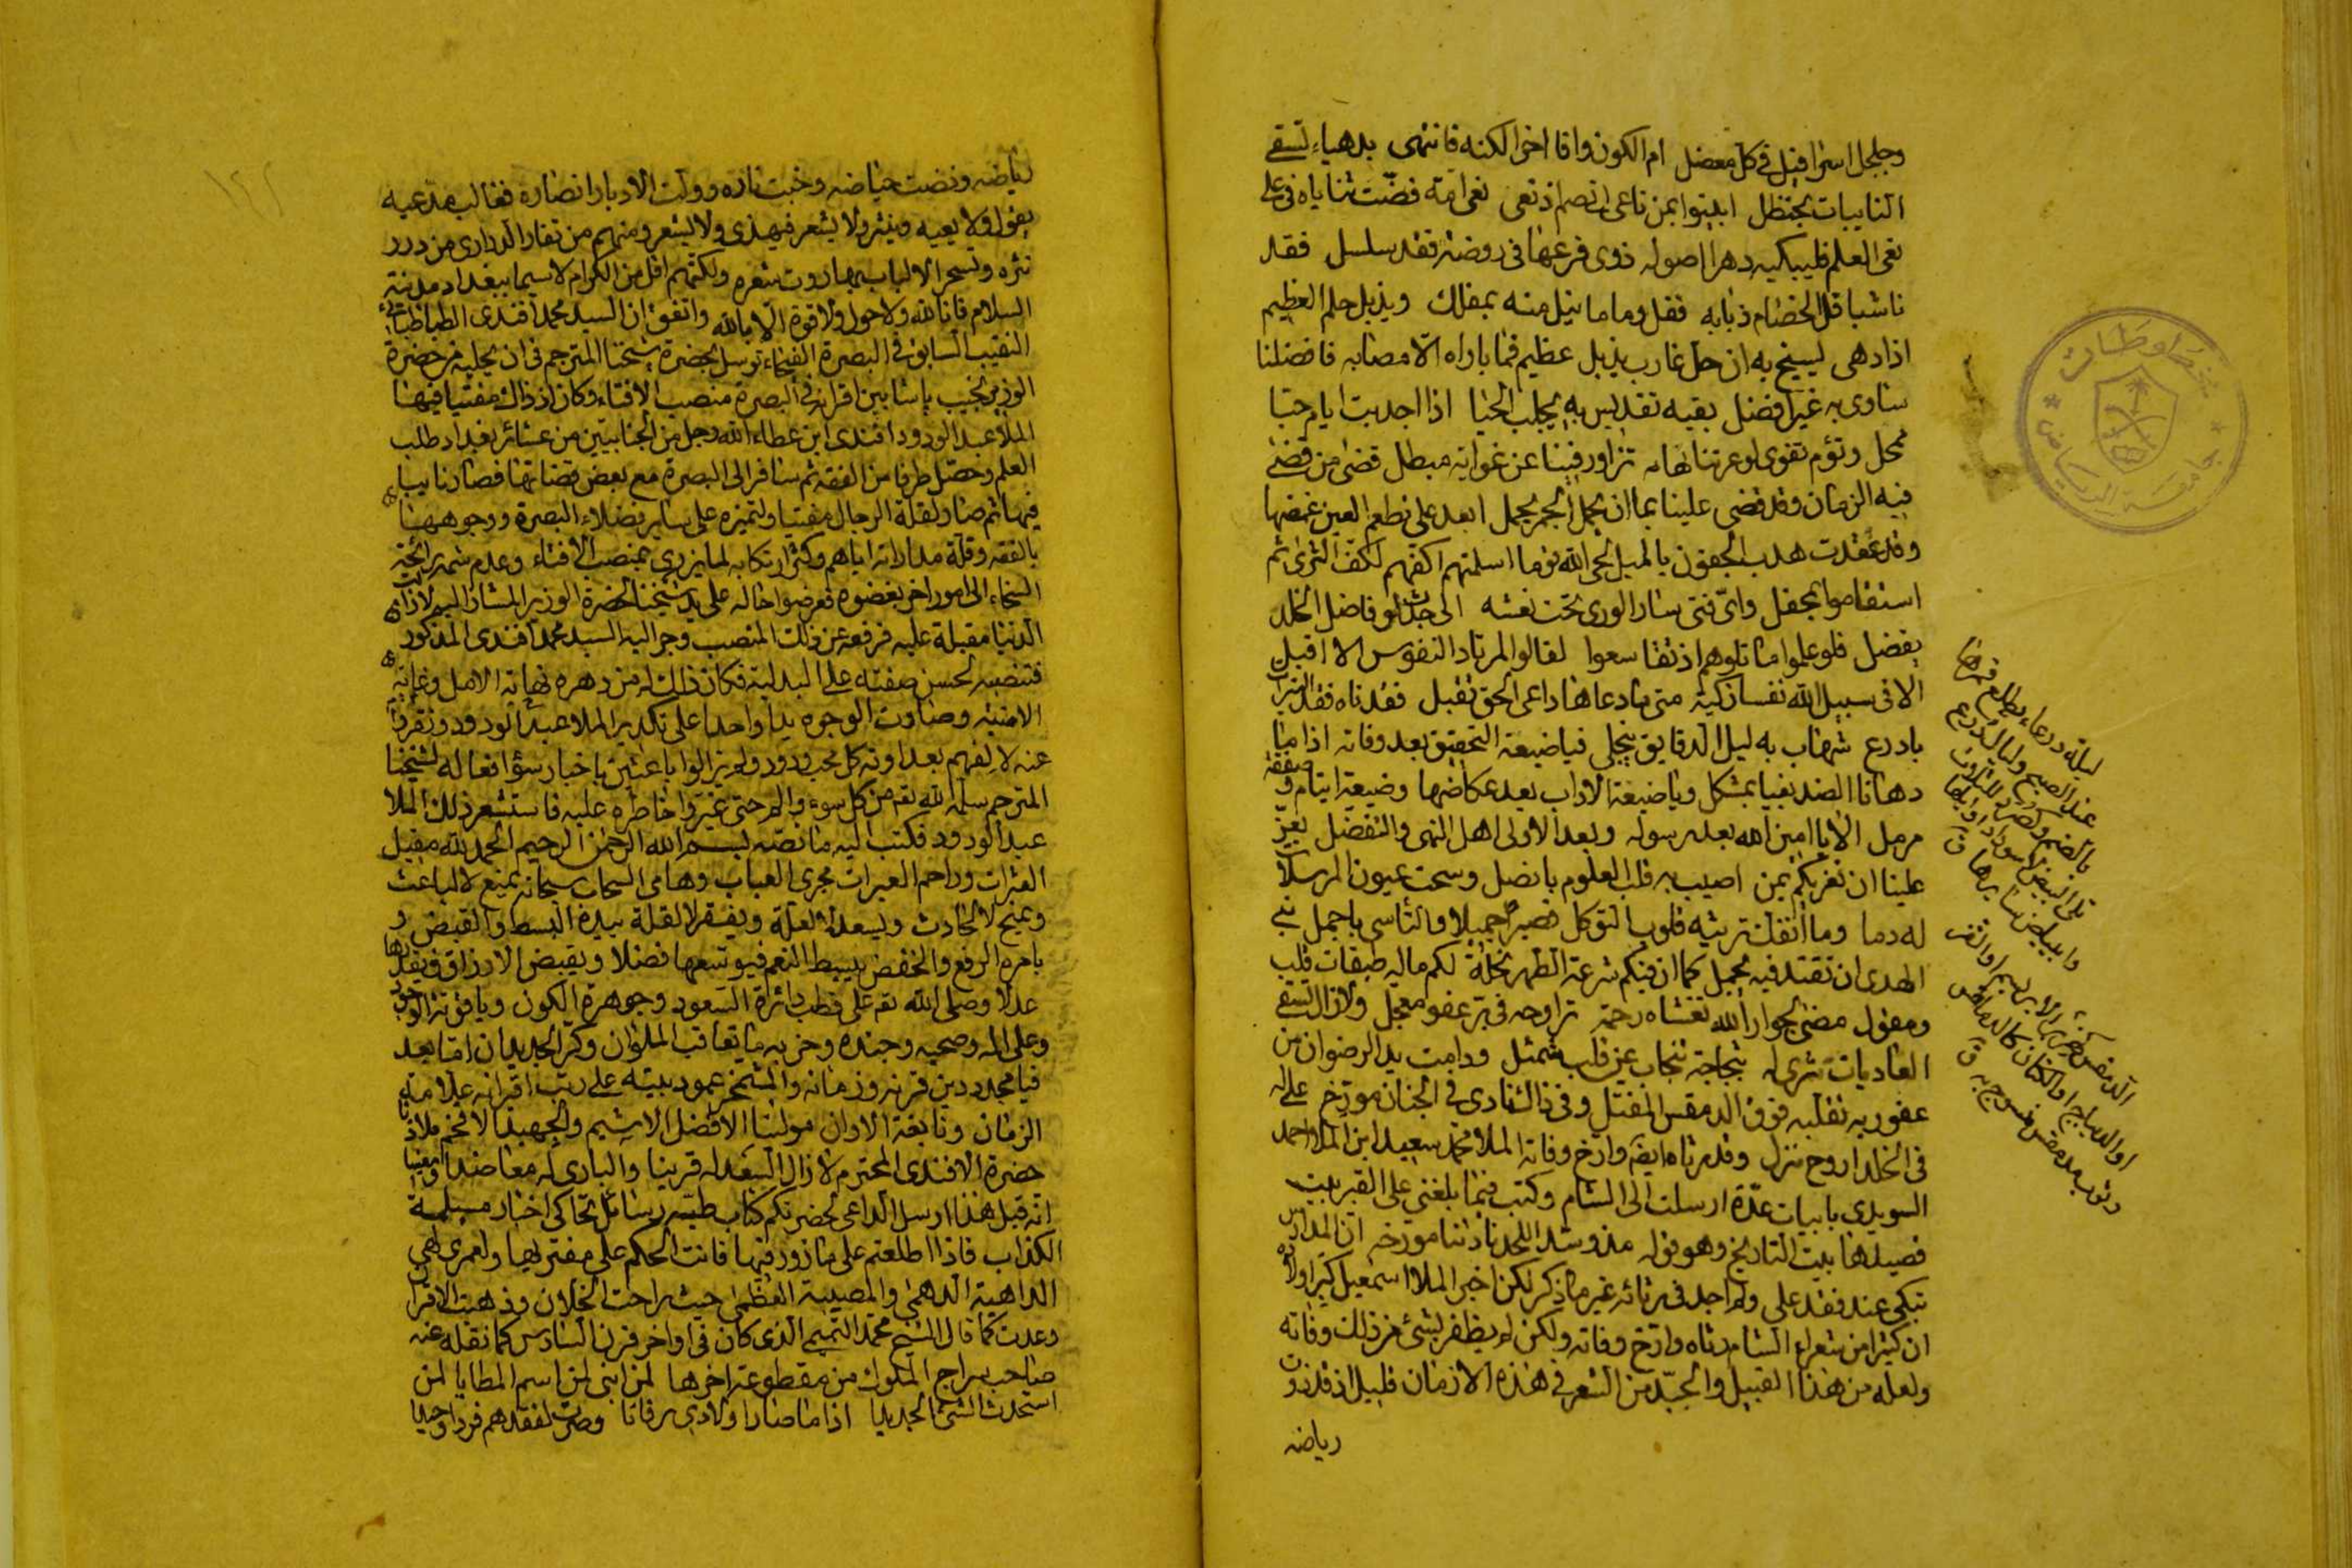 وجلجل اسرافيل في كل معضل ام الكون وافا اخر الكنه فانتهى بدهياء تسقي
النايبات بحنظل ابينوا بمن ناعي اذ نعى نعى امة فضت ثناياه في على
نعى العلم فليبكيه دهرا اصوله ذوى فرعها في روضة فقد سلسل فقد
ناشبا قل الخضام ذبابه فقل وما ما نيل منه بمفلل ويذبل حلم العظيم
اذا دهى ليسيخ به ان حل غارب يذبل عظيم فما باراه الا مصابه فافضلنا
ساوى به غير افضل بقيه تقديس به يجلب الحيا اذا اجدبت ايام حتبا
محل وتؤم تقوى لو عرتنا تزاور فينا عن غوايه مبطل قضى من قضى
فيه الزمان وقد قضى علينا بما ان يحمل الجمر يجمل ابعد على نطع العين غمضها
وقد عقدت هدب الجفون بالميل لحى الله قوما اسلمتهم اكفهم لكف الثرى ثم
استقاموا بمحفل واى فتى سار الورى تحت نعشه الى جدث لو فاضل الخلد
يفضل فلو علموا ما تلوهم اذ نفا سعوا لقالوا المرتاد النفوس الا اقبل
الا في سبيل الله نفسا زكية متى ما دعاها داعى الحق تقبل فقدناه فقد
بادرع شهاب به ليل الدقايق ينجلي فيا ضيعة التحقيق بعد وفاته اذا ما
دهانا الضد يفيا بمشكل ويا ضيعة الاداب بعد عكاضها وضيعة ايتام و
مرمل الا يا امين الله بعد رسوله وبعد الاولى اهل النهى والتفضل يعز
علينا ان نعزيكم بمن اصيب به قلب العلوم بانصل وسحت عيون المرسلات
له دما وما انفك ترثيه قلوب التوكل فصبرا جميلا والتاسى باجمل بنى
الهدى ان نقتد فيه بجميل كما ان فيكم شرعة الطهر نحلة لكم ماليه طبقات قلب
ومقول مضى لجوار الله تغشاه رحمة تراوحه في بر عفو معجل ولا زال تسقى
الغاديات ثرى له بثجاجة تنجاب عن قلب شمئل ودامت يد الرضوان من
عفو ربه تقلبه فوق الدمقس المفتل وفي ذا الثنادى في الجنان مورخ على له
في الخلد اروح منزل وقد رثاه ايضه وارخ وفاته الملا محمد سعيد ابن الملا احمد
السويدى بابيات عدة ارسلت الى الشام وكتب فيما بلغنى على القبر بيت
قصيدها بيت التاريخ وهو قوله مذ وسد اللحد نادتنا مورخه ان المدارس
تبكى عند فقد على ولم اجد في رثائه غير ما ذكر لكن اخبر الملا اسمعيل كبير اولاده
ان كثيرا من شعراء الشام رثاه وارخ وفاته ولكن لم يظفر بشئ من ذلك وفاته
ولعله من هذا القبيل والجيد من الشعر في هذه الازمان قليل اذ قد ذوت
رياضه
ليلة درعاء يطلع قمرها
عند الصبح وليال درع
بالضم وكصرد للثلاث
تلى البيض لاسوداد اوايلها
وابيضاض سايرها ق
الدمقس كهزبر الابريسم او القز
او الديباج او الكتان كالدمقاس
وثوب مدمقس منسوج به ق
رياضه ونضبت حياضه وخبت ناره وولت الادبار انصاره فغالب مدعيه
يقول ولا يعيه وينثر ولا يشعر فيهذى ولا يشعر ومنهم من تغار الدرارى من درر
نثره وتسحر الالباب بهاروت شعره ولكنهم اقل من الكرام لاسيما ببغداد مدينة
السلام فانا لله ولا حول ولا قوة الا بالله واتفق ان السيد محمد افندى الطباطبائى
النقيب السابق في البصرة الفيحاء توسل بحضرة شيخنا المترجم في ان يجلبه من حضرة
الوزير نجيب باشا بين اقرانه في البصرة منصب الافتاء وكان اذ ذاك مفتيا فيها
الملا عبد الودود افندى ابن عطاء الله رجل من الجنابيين من عشائر بغداد طلب
العلم وحصل طرفا من الفقه ثم سافر الى البصرة مع بعض قضاتها فصار نايبا
فيها ثم صار لقلة الرجال مفتيا ولتميزه على ساير فضلاء البصرة ووجوهها
بالفقه وقلة مداراته اياهم وكثر ارتكابه لما يزرى بمنصب الافتاء وعدم شمه رائحة
السخاء الى امور اخر بغضوه فعرضوا حاله على يد شيخنا لحضرة الوزير المشار اليه لازالت
الدنيا مقبلة عليه فرفعه عن ذلك المنصب وجر اليه السيد محمد افندى المذكور
فتنصبه لحسن صفته على البدلية فكان ذلك له من دهره نهاية الامل وغاية
الامنية وصارت الوجوه يدا واحدا على تكدير الملا عبد الودود وتفرقوا
عنه لالفهم بعداوته كل محب ودود ولم يزالوا باعثين باخبار سؤ افعاله لشيخنا
المترجم سلمه الله تعم من كل سوء والم حتى غيروا خاطره عليه فاستشعر ذلك الملا
عبد الودود فكتب اليه ما نصه بسم الله الرحمن الرحيم الحمد لله مقيل
العثرات وراحم العبرات مجرى العباب وهامى السحاب سبحانه يمنع لا لباعث
ويمنح لا لحادث ويسعد لا لعلة ويفقر لا لقلة بيده البسط والقبض و
بامره الرفع والخفض يبسط النعم فيوسعها فضلا ويقبض الارزاق فيقدرها
عدلا وصلى الله تعم على قطب دائرة السعود وجوهرة الكون وياقوتة الوجود
وعلى اله وصحبه وجنده وحزبه ما تعاقب الملوان وكر الجديدان اما بعد
فيا مجدد دين قرنه وزمانه والمشمخر عمود بيته على رتب اقرانه علامة
الزمان ونابغة الاوان مولينا الافضل الاشيم والجهبذ الافخم ملاذنا
حضرة الافندى المحترم لا زال السعد له قرينا والبارى له معاضدا ومعينا
انه قبل هذا ارسل الداعى لحضرتكم كتاب طيه رسائل تحاكى اخبار مسيلمة
الكذاب فاذا اطلعتم على ما زور فيها فانت الحكم على مفتريها ولعمرى لهى
الداهية الدهمى والمصيبة العظمى حيث راحت الخلان وذهبت الاقران
وعدت كما قال الشيخ محمد التميمى الذى كان في اواخر قرن السادس كما نقله عنه
صاحب سراج الملوك من مقطوعة اخرها لمن ابنى لمن اسم المطايا لمن
استحدث الشئ الجديدا اذا ما صار اولادى رفاتا وصرت لفقدهم فردا وحيدا